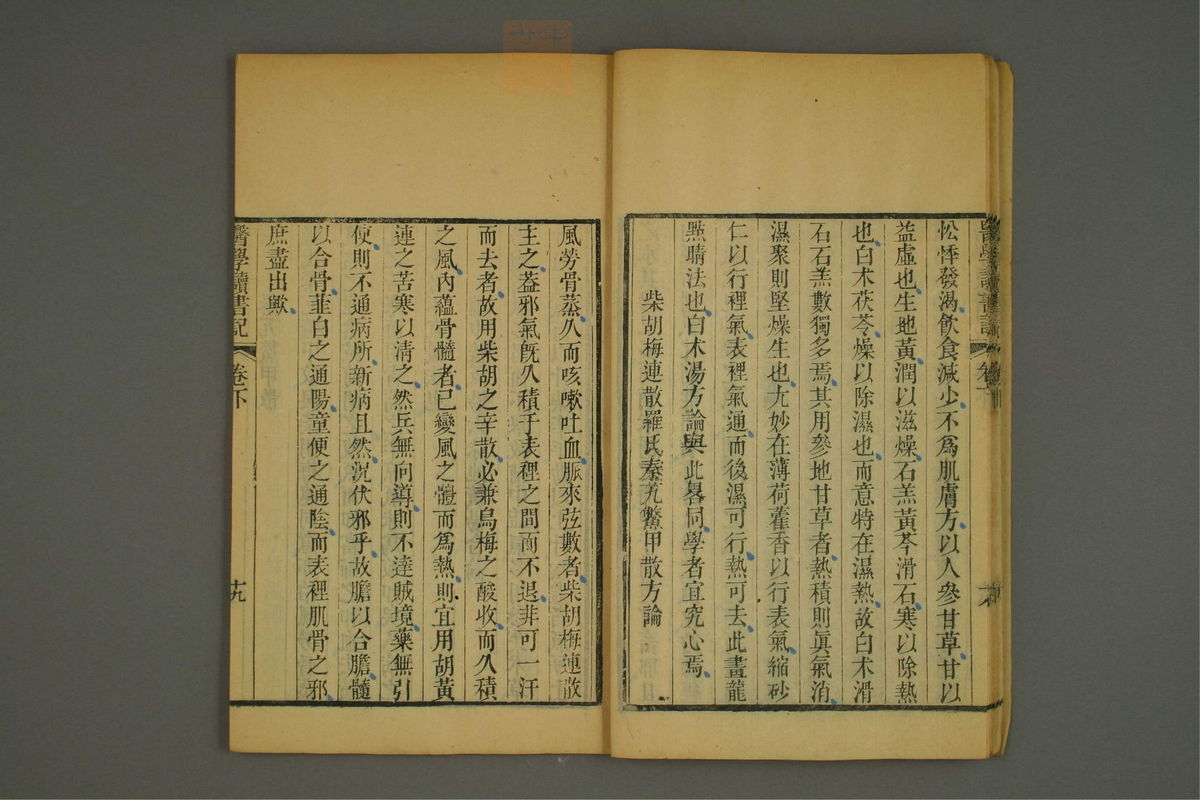 忪悸發渴飲食減少不爲肌膚方以人參甘草甘以
益虛也生地黃潤以滋燥石羔黃芩滑石寒以除熱
也白朮茯苓燥以除濕也而意特在濕熱故白朮滑
石石羔數獨多焉其用參地甘草者熱積則眞氣消
濕聚則堅燥生也尤妙在薄荷藿香以行表氣縮砂
仁以行裡氣表裡氣通而後濕可行熱可去此畫龍
點睛法也白朮湯方論與此畧同學者宜究心焉
柴胡梅連散羅氏秦艽鱉甲散方論
風勞骨蒸久而咳嗽吐血脈來弦數者柴胡梅連散
主之葢邪氣旣久積于表裡之間而不退非可一汗
而去者故用柴胡之辛散必兼烏梅之酸收而久積
之風內蘊骨髓者已變風之體而爲熱則宜用胡黃
連之苦寒以清之然兵無向導則不達賊境藥無引
使則不通病所新病且然況伏邪乎故膽以合膽髓
以合骨薤白之通陽童便之通陰而表裡肌骨之邪
庶盡出歟
醫學讀書記
卷下
十九